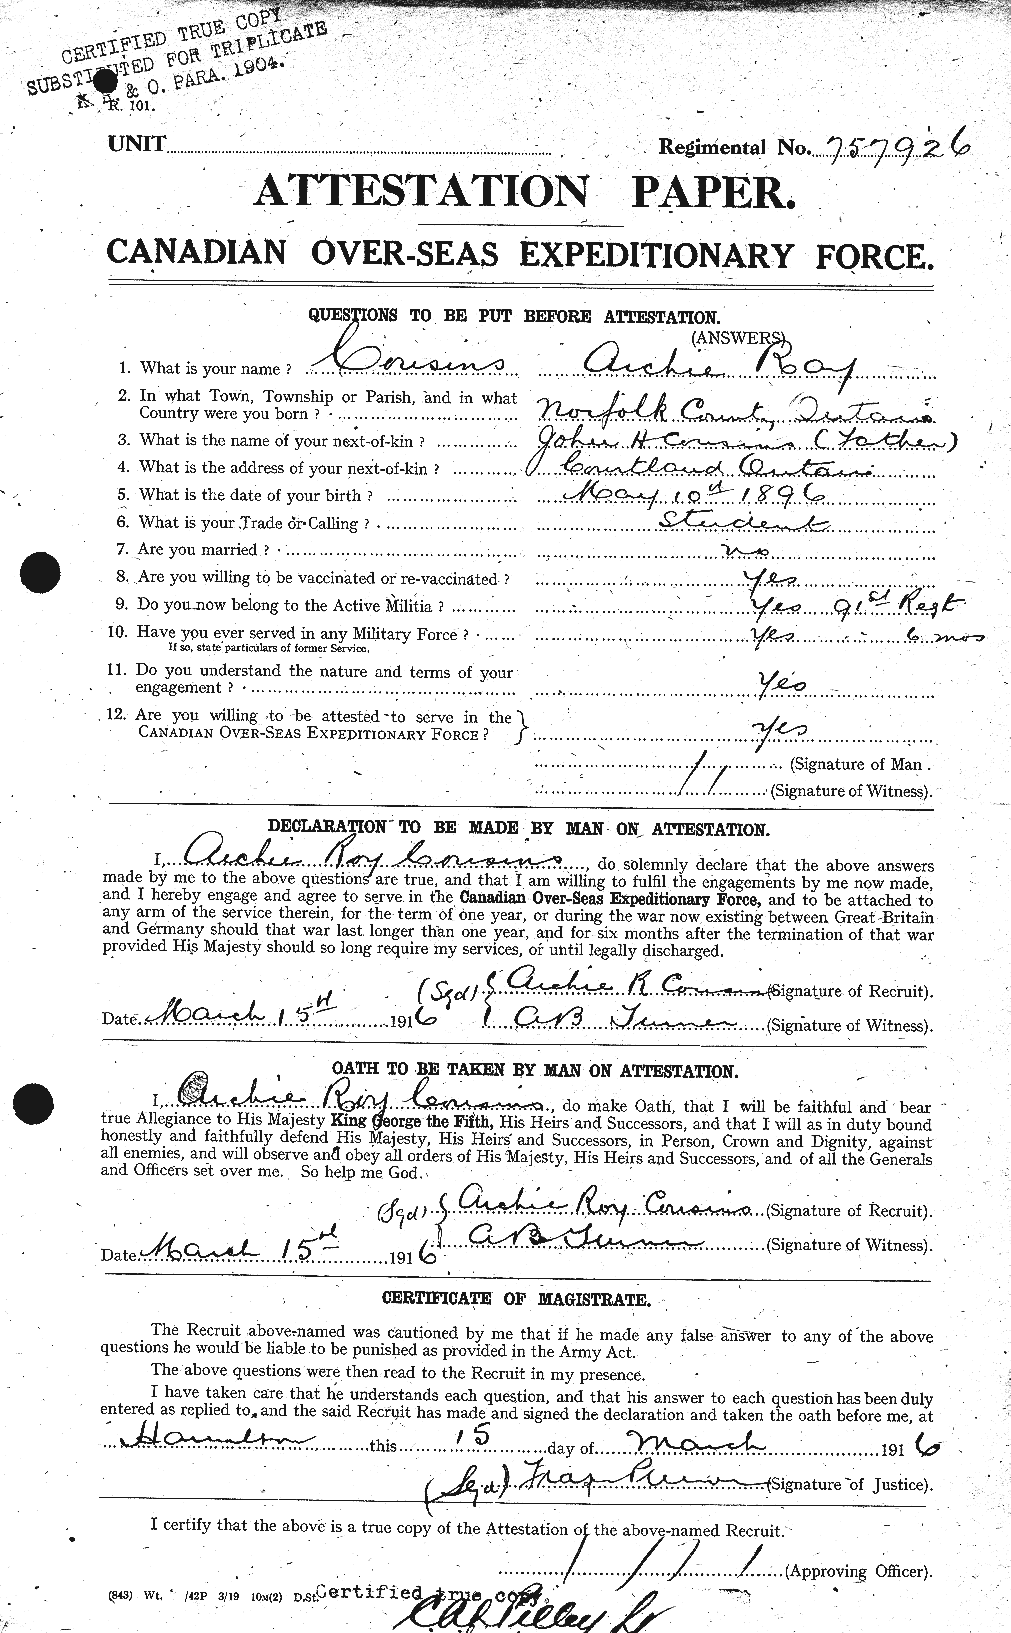 CERTIFIED TRUE COPY
SUBSTITUTED FOR TRIPLICATE
& O. PARA. 1904.
R. 101.
UNIT
Regimental No. 757926
ATTESTATION PAPER.
CANADIAN OVER-SEAS EXPEDITIONARY FORCE.
QUESTIONS TO BE PUT BEFORE ATTESTATION.
(ANSWERS)
1. What is your name ? Cousins Archie Roy
2. In what Town, Township or Parish, and in what
Country were you born ? Norfolk County, Ontario
3. What is the name of your next-of-kin ? John H Cousins (Father)
4. What is the address of your next-of-kin ? Courtland Ontario
5. What is the date of your birth ? May 10th 1896
6. What is your Trade or Calling ? Student
7. Are you married ? no
8. Are you willing to be vaccinated or re-vaccinated ? Yes
9. Do you now belong to the Active Militia ? Yes 91st Regt
10. Have you ever served in any Military Force ? Yes 6 mos
If so, state particulars of former Service.
11. Do you understand the nature and terms of your
engagement ? Yes
12. Are you willing to be attested to serve in the
CANADIAN OVER-SEAS EXPEDITIONARY FORCE ? } Yes
(Signature of Man.
(Signature of Witness).
DECLARATION TO BE MADE BY MAN ON ATTESTATION.
I, Archie Roy Cousins, do solemnly declare that the above answers
made by me to the above questions are true, and that I am willing to fulfil the engagements by me now made,
and I hereby engage and agree to serve in the Canadian Over-Seas Expeditionary Force, and to be attached to
any arm of the service therein, for the term of one year, or during the war now existing between Great Britain
and Germany should that war last longer than one year, and for six months after the termination of that war
provided His Majesty should so long require my services, or until legally discharged.
(Sgd) { Archie R Cousins (Signature of Recruit).
Date March 15th 1916 A B Turner (Signature of Witness).
OATH TO BE TAKEN BY MAN ON ATTESTATION.
I, Archie Roy Cousins, do make Oath, that I will be faithful and bear
true Allegiance to His Majesty King George the Fifth, His Heirs and Successors, and that I will as in duty bound
honestly and faithfully defend His Majesty, His Heirs and Successors, in Person, Crown and Dignity, against
all enemies, and will observe and obey all orders of His Majesty, His Heirs and Successors, and of all the Generals
and Officers set over me. So help me God.
(Sgd) { Archie Roy Cousins (Signature of Recruit).
Date March 15th 1916 A B Turner (Signature of Witness).
CERTIFICATE OF MAGISTRATE.
The Recruit above-named was cautioned by me that if he made any false answer to any of the above
questions he would be liable to be punished as provided in the Army Act.
The above questions were then read to the Recruit in my presence.
I have taken care that he understands each question, and that his answer to each question has been duly
entered as replied to, and the said Recruit has made and signed the declaration and taken the oath before me, at
Hamilton this 15 day of March 1916
(Sgd) (Signature of Justice).
I certify that the above is a true copy of the Attestation of the above-named Recruit.
(Approving Officer).
(843) Wt. /42P 3/19 10M(2) D.St. Certified true copy.